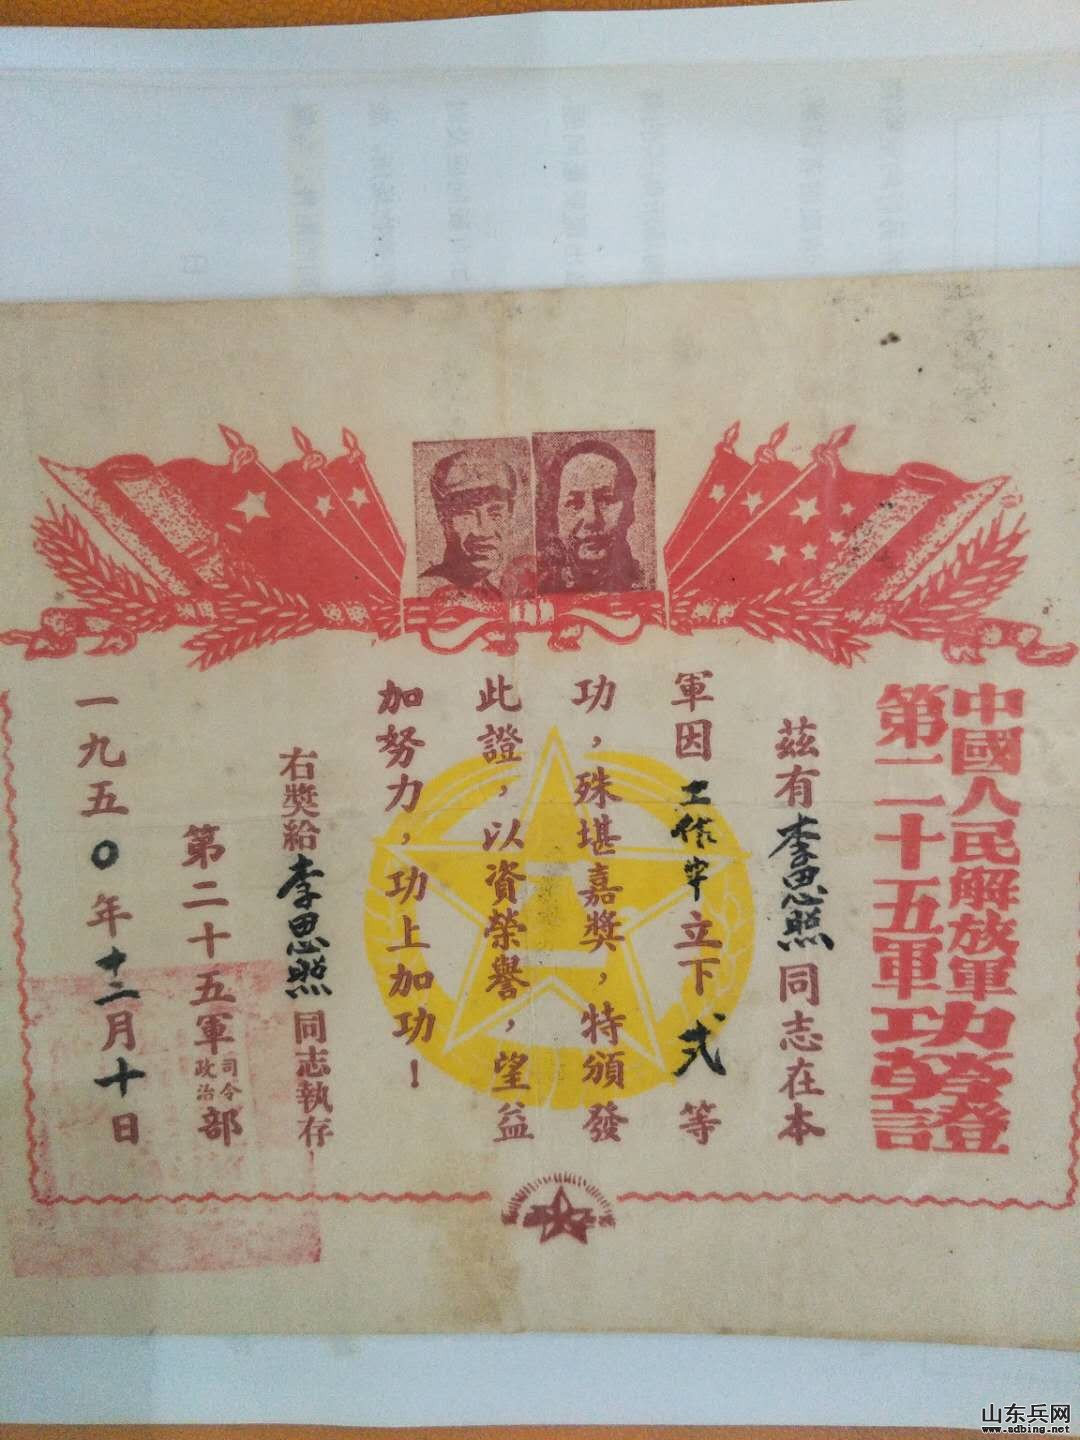 中國人民解放軍
第二十五軍功勞證
茲有李思照同志在本
軍因工作中立下弍等
功，殊堪嘉獎，特頒發
此證，以資榮譽，望益
加努力，功上加功！
右獎給李思照同志執存
第二十五軍司令政治部
一九五0年十二月十日
山东兵网
www.sdbing.net